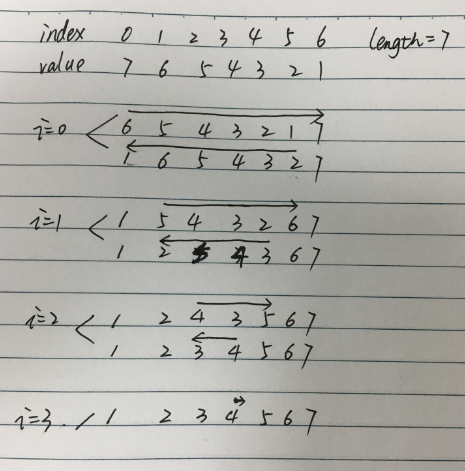 index 0 1 2 3 4 5 6 length=7
value 7 6 5 4 3 2 1
i=0 < 6 5 4 3 2 1 7
1 6 5 4 3 2 7
i=1 < 1 5 4 3 2 6 7
1 2 5 4 3 6 7
i=2 < 1 2 4 3 5 6 7
1 2 3 4 5 6 7
i=3. / 1 2 3 4 5 6 7